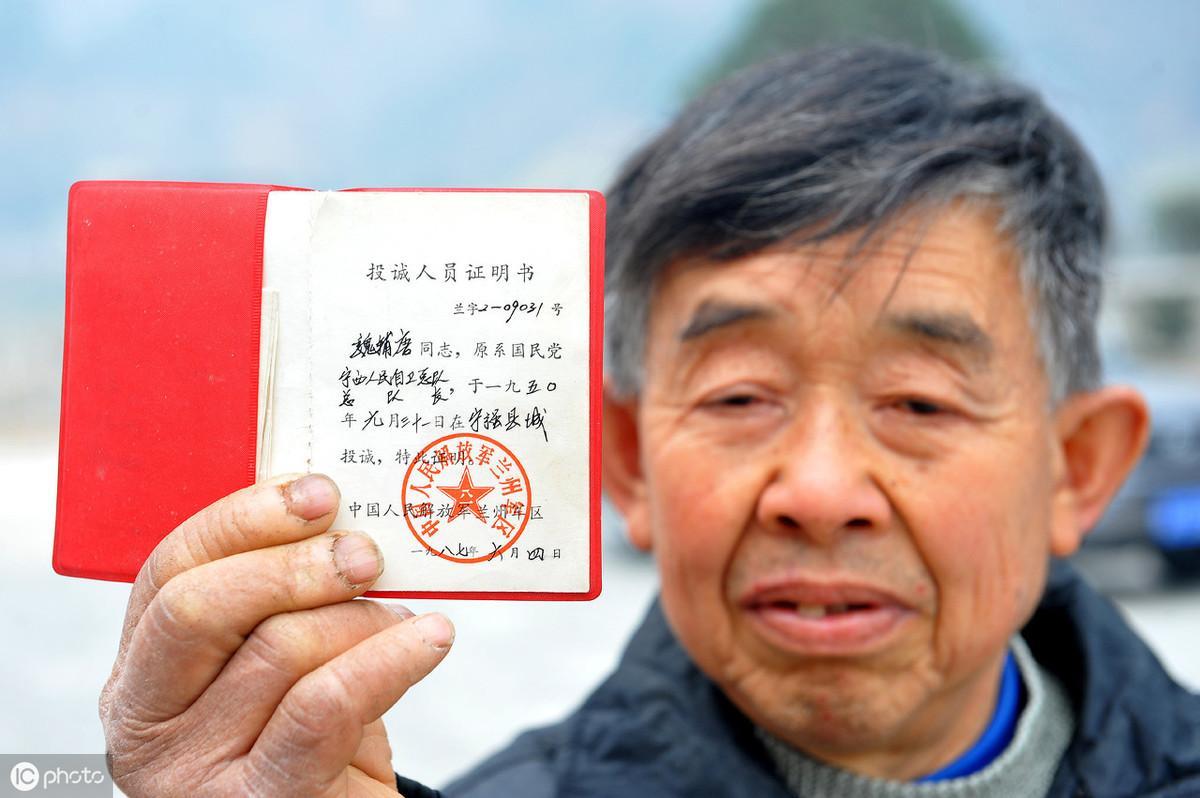 投诚人员证明书
兰字2-09031号
魏辅唐同志，原系国民党
宁西人民自卫总队
总队长，于一九五〇
年元月二十一日在宁强县城
投诚，特此证明。
中国人民解放军兰州军区
一九八七年六月四日
中国人民解放军兰州军区
八一
IC photo